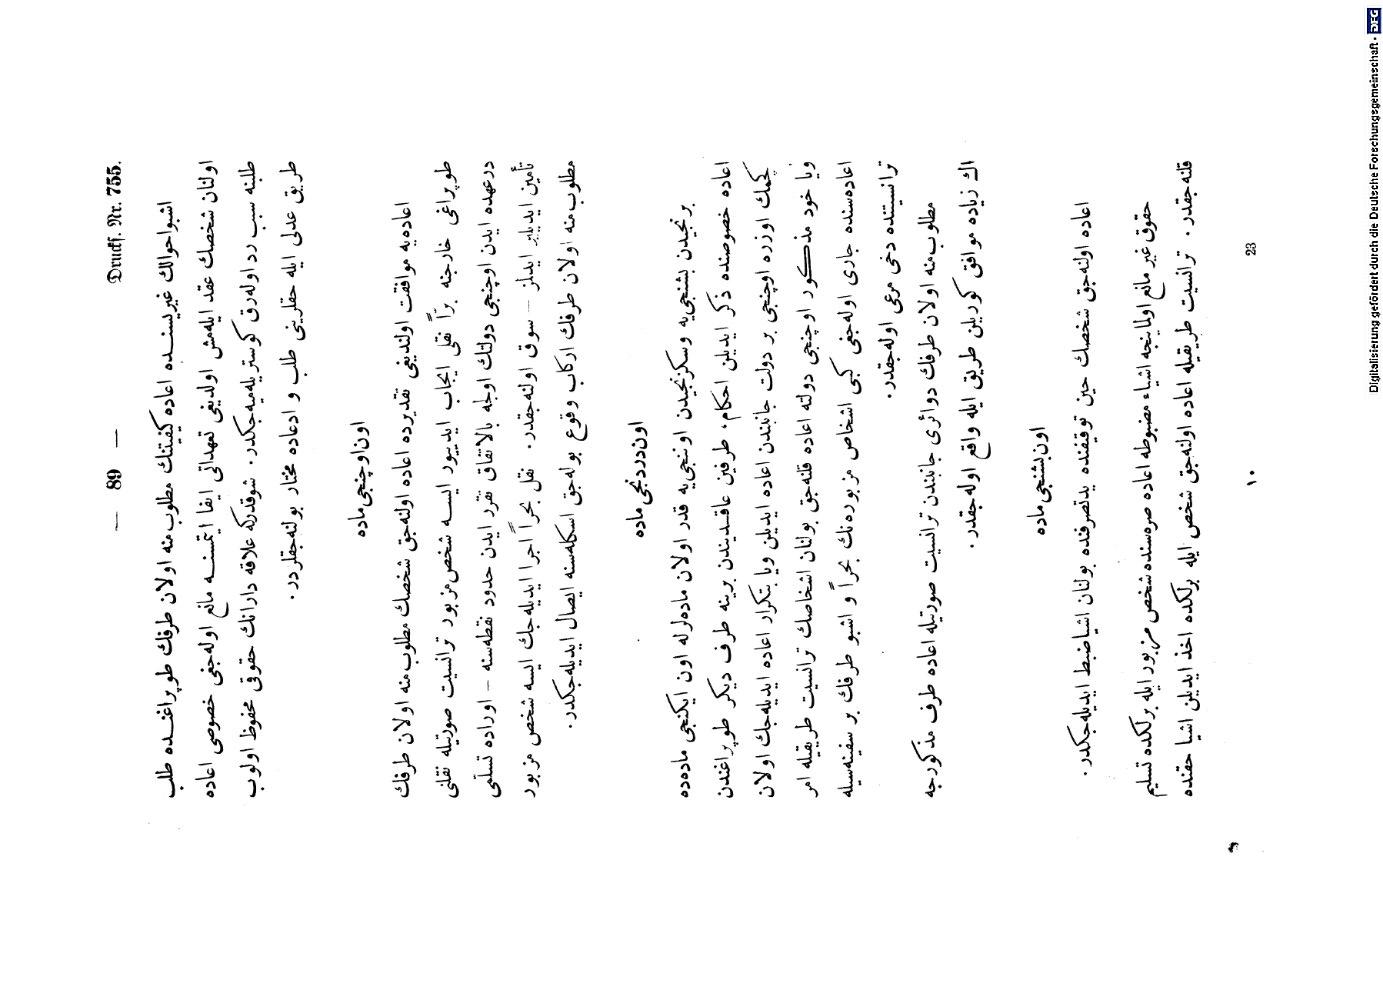 — 89 —
Drucks. Nr. 755.
اشبو احوالك غيريسنده اعاده كيفيتك مطلوب منه اولان طرفك طوپراغنده طلب
اولنان شخصك عقد ايلەمش اولديغى تعهداتى ايفا ايتمسنه مانع اولەجغى خصوصى اعاده
طلبنه سبب رد اولەرق كوستريلەميەجكدر. شوقدركه علاقه دارانك حقوقى محفوظ اولوب
طريق عدلى ايله حقلرينى طلب و ادعاده مختار بولنەجقلردر.
اون اوچنجى ماده
اعادەيه موافقت اولنديغى تقديرده اعاده اولنەجق شخصك مطلوب منه اولان طرفك
طوپراغى خارجنه براً نقلى ايجاب ايدييور ايسه شخص مزبور ترانسيت صورتيله نقلنى
درعهده ايدن اوچنجى دولتك اوجله بالاتفاق تقرر ايدن حدود نقطەسنه — اوراده تسلمى
تأمين ايديلير ايديلمز — سوق اولنەجقدر. نقل بحراً اجرا ايديلەجك ايسه شخص مزبور
مطلوب منه اولان طرفك اركاب وقوع بولەجق اسكلەسنه ايصال ايديلەجكدر.
اون دردنجى ماده
برنجيدن بشنجىيه وسكزنجيدن اوننجىيه قدر اولان مادەلرله اون ايكنجى مادەده
اعاده خصوصنده ذكر ايديلن احكام، طرفين عاقديندن برينه طرف ديكر طوپراغندن
كچمك اوزره اوچنجى بر دولت جانبندن اعاده ايديلن ويا بتكرار اعاده ايديلەجك اولان
ويا خود مذكور اوچنجى دولته اعاده قلنەجق بولنان اشخاصك ترانسيت طريقيله امر
اعادەسنده جارى اولەجغى كبى اشخاص مزبورەنك بحراً و اشبو طرفك بر سفينەسيله
ترانسيتنده دخى مرعى اولەجقدر.
مطلوب منه اولان طرفك دوائرى جانبندن ترانسيت صورتيله اعاده طرف مذكورجه
اك زياده موافق كوريلن طريق ايله واقع اولەجقدر.
اون بشنجى ماده
اعاده اولنەجق شخصك حين توقيفنده يدتصرفنده بولنان اشيا ضبط ايديلەجكدر.
حقوق غير مانع اولماينجه اشياء مضبوطه اعاده صرەسنده شخص مزبور ايله برلكده تسليم
قلنەجقدر. ترانسيت طريقيله اعاده اولنەجق شخص ايله برلكده اخذ ايديلن اشيا حقنده
١٠
23
Digitalisierung gefördert durch die Deutsche Forschungsgemeinschaft - DFG